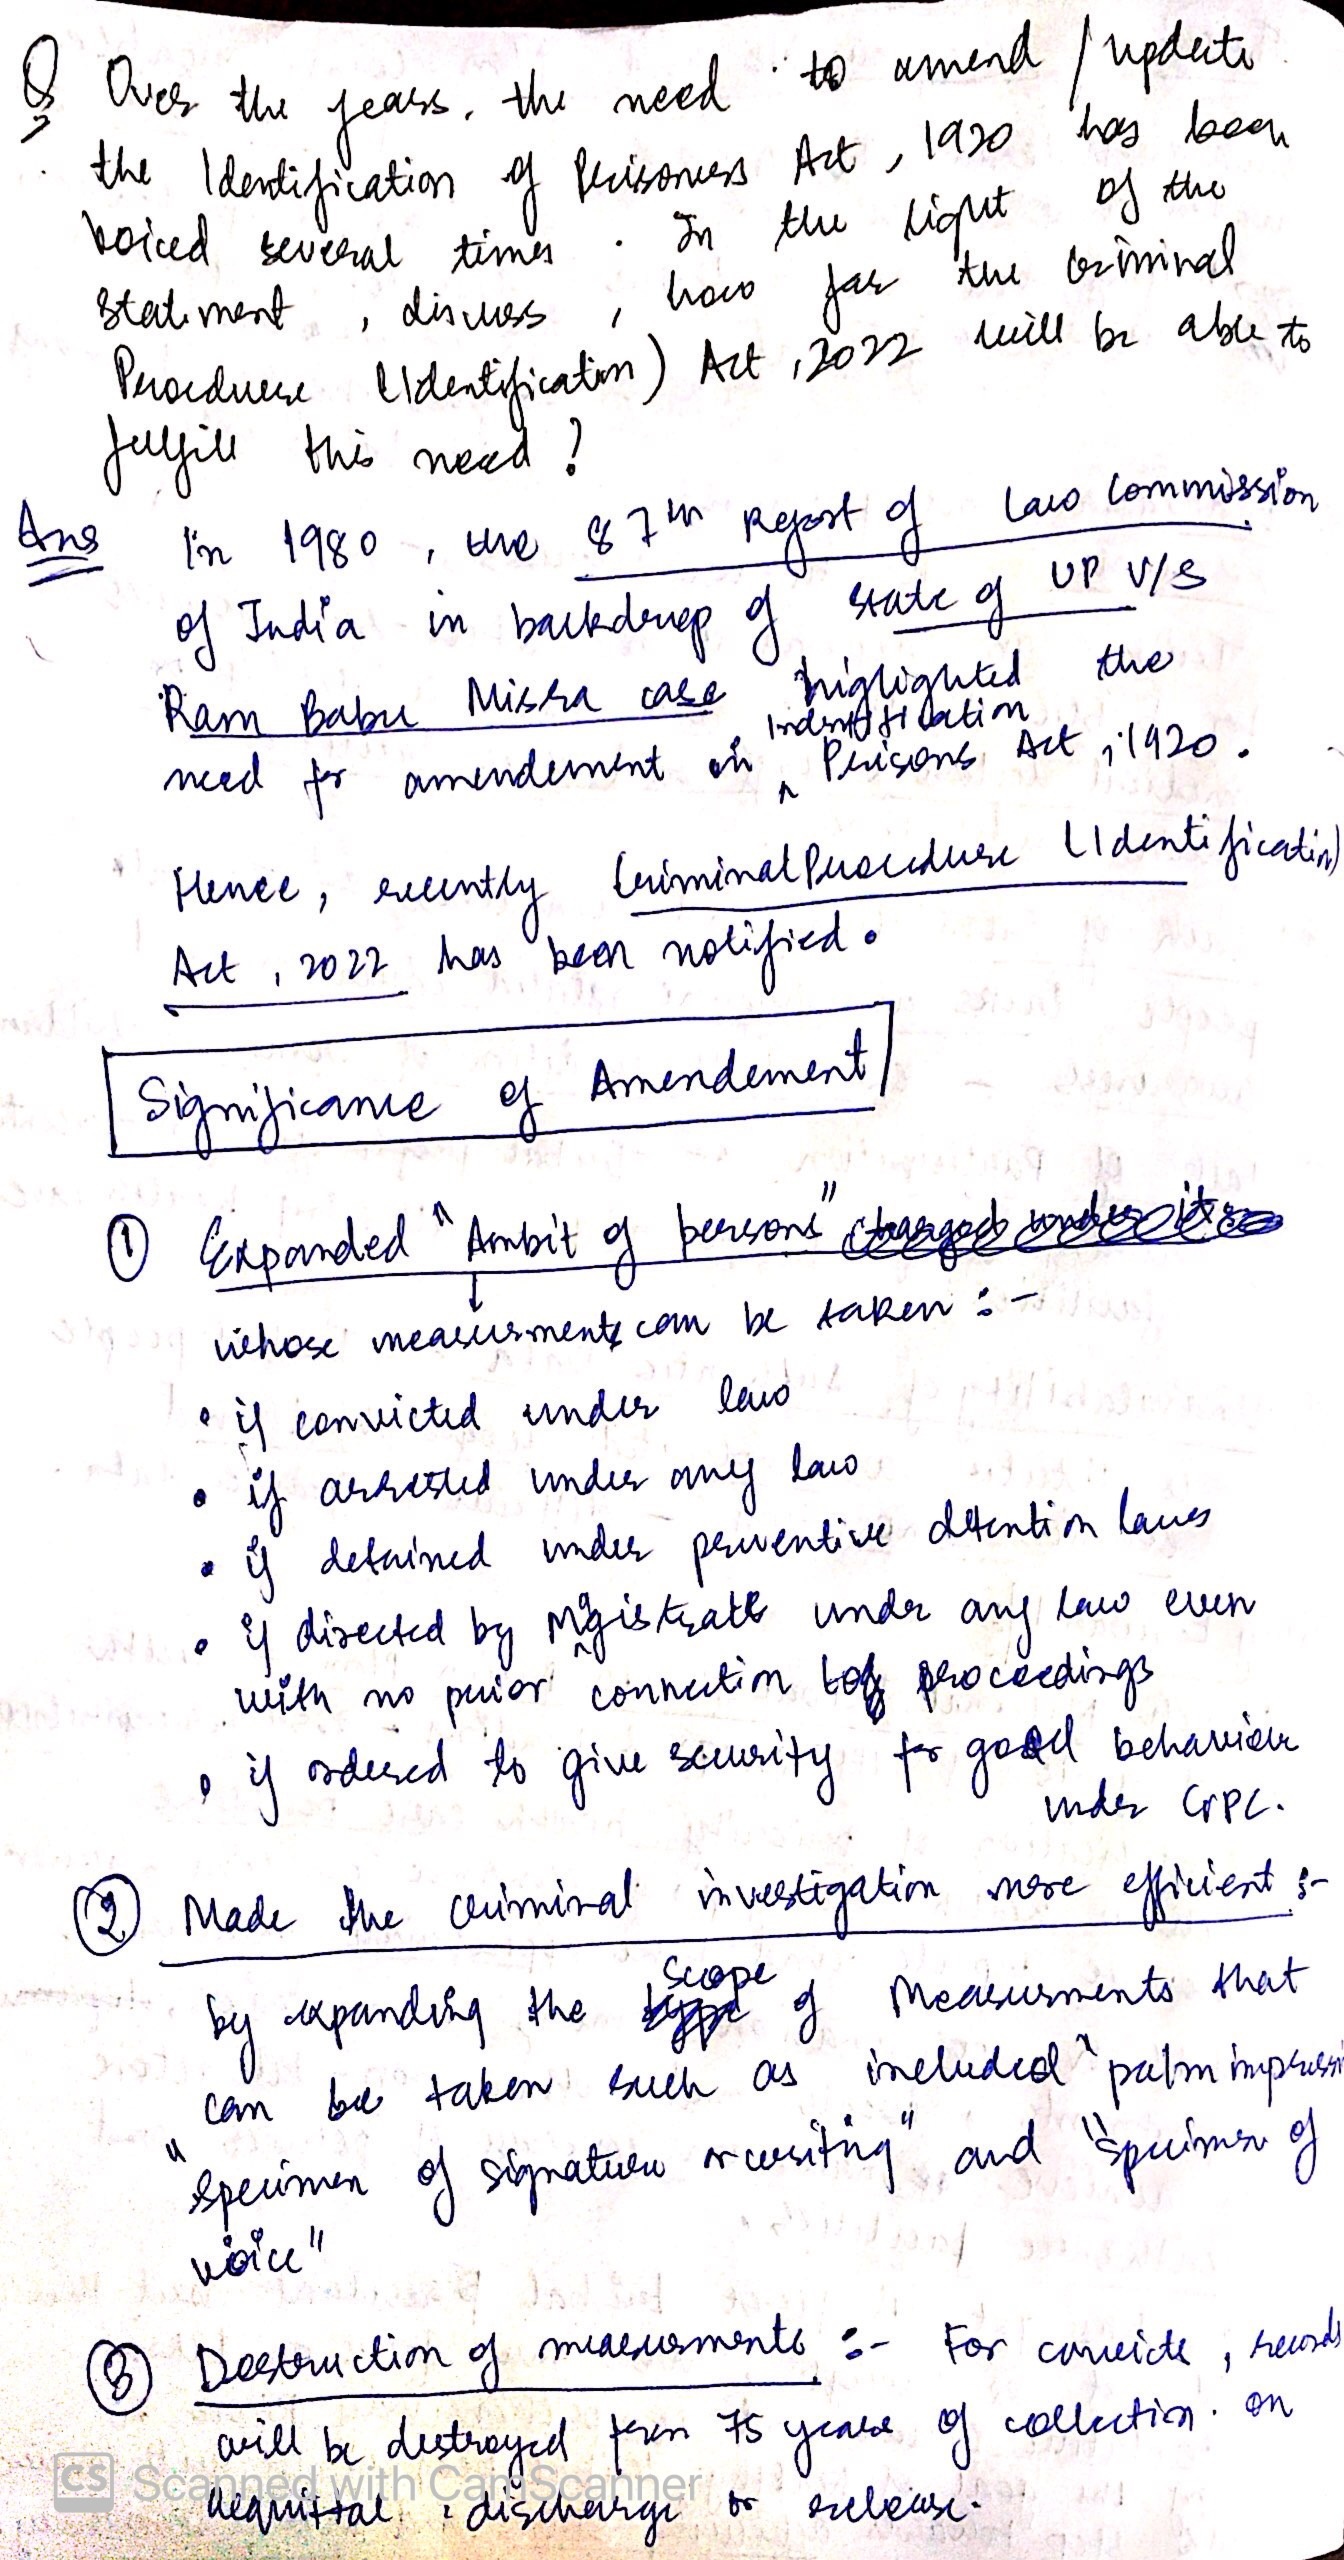 Q Over the years, the need to amend / update
the Identification of Prisoners Act, 1920 has been
voiced several times. In the light of the
statement, discuss, how far the Criminal
Procedure (Identification) Act, 2022 will be able to
fulfill this need?
Ans In 1980, the 87th Report of Law Commission
of India in backdrop of State of UP V/S
Ram Babu Misra case higlighted the
Indentification
need for amendement in ^ Prisons Act, 1920.
Hence, recently Criminal Procedure (Identification)
Act, 2022 has been notified.
Significance of Amendement
① Expanded "Ambit of persons"
whose measurments can be taken :-
• if convicted under law
• if arrested under any law
• if detained under preventive detention laws
• if directed by Magistrate under any law even
with no prior connection to proceedings
• if ordered to give security for good behaviour
under CrPC.
② Made the criminal investigation more efficient :-
by expanding the scope of Measurments that
can be taken such as included "palm impressi
"specimen of signature or writing" and "specimen of
voice"
③ Destruction of measurments :- For convicts, records
will be destroyed from 75 years of collection. on
acquittal, discharge or release.
CS Scanned with CamScanner